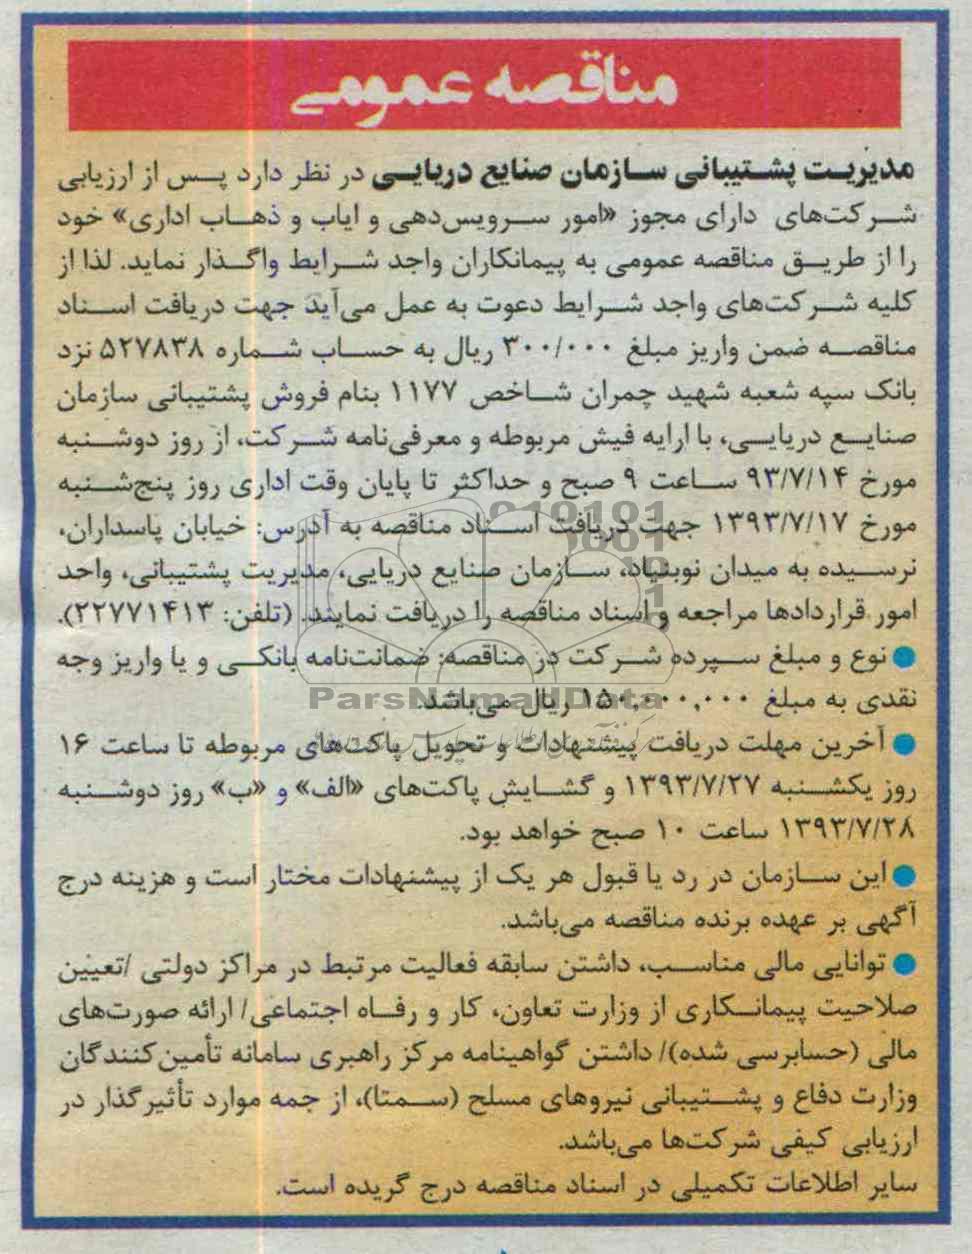 مناقصه عمومی
مدیریت پشتیبانی سازمان صنایع دریایی در نظر دارد پس از ارزیابی
شرکت‌های دارای مجوز «امور سرویس‌دهی و ایاب و ذهاب اداری» خود
را از طریق مناقصه عمومی به پیمانکاران واجد شرایط واگذار نماید. لذا از
کلیه شرکت‌های واجد شرایط دعوت به عمل می‌آید جهت دریافت اسناد
مناقصه ضمن واریز مبلغ ۳۰۰/۰۰۰ ریال به حساب شماره ۵۲۷۸۳۸ نزد
بانک سپه شعبه شهید چمران شاخص ۱۱۷۷ بنام فروش پشتیبانی سازمان
صنایع دریایی، با ارایه فیش مربوطه و معرفی‌نامه شرکت، از روز دوشنبه
مورخ ۹۳/۷/۱۴ ساعت ۹ صبح و حداکثر تا پایان وقت اداری روز پنج‌شنبه
مورخ ۱۳۹۳/۷/۱۷ جهت دریافت اسناد مناقصه به آدرس: خیابان پاسداران،
نرسیده به میدان نوبنیاد، سازمان صنایع دریایی، مدیریت پشتیبانی، واحد
امور قراردادها مراجعه و اسناد مناقصه را دریافت نمایند. (تلفن: ۲۲۷۷۱۴۱۳).
● نوع و مبلغ سپرده شرکت در مناقصه: ضمانت‌نامه بانکی و یا واریز وجه
نقدی به مبلغ ۱۵۰,۰۰۰,۰۰۰ ریال می‌باشد.
ParsNamadData
● آخرین مهلت دریافت پیشنهادات و تحویل پاکت‌های مربوطه تا ساعت ۱۶
روز یکشنبه ۱۳۹۳/۷/۲۷ و گشایش پاکت‌های «الف» و «ب» روز دوشنبه
۱۳۹۳/۷/۲۸ ساعت ۱۰ صبح خواهد بود.
● این سازمان در رد یا قبول هر یک از پیشنهادات مختار است و هزینه درج
آگهی بر عهده برنده مناقصه می‌باشد.
● توانایی مالی مناسب، داشتن سابقه فعالیت مرتبط در مراکز دولتی /تعیین
صلاحیت پیمانکاری از وزارت تعاون، کار و رفاه اجتماعی/ ارائه صورت‌های
مالی (حسابرسی شده)/ داشتن گواهینامه مرکز راهبری سامانه تأمین‌کنندگان
وزارت دفاع و پشتیبانی نیروهای مسلح (سمتا)، از جمه موارد تأثیرگذار در
ارزیابی کیفی شرکت‌ها می‌باشد.
سایر اطلاعات تکمیلی در اسناد مناقصه درج گریده است.